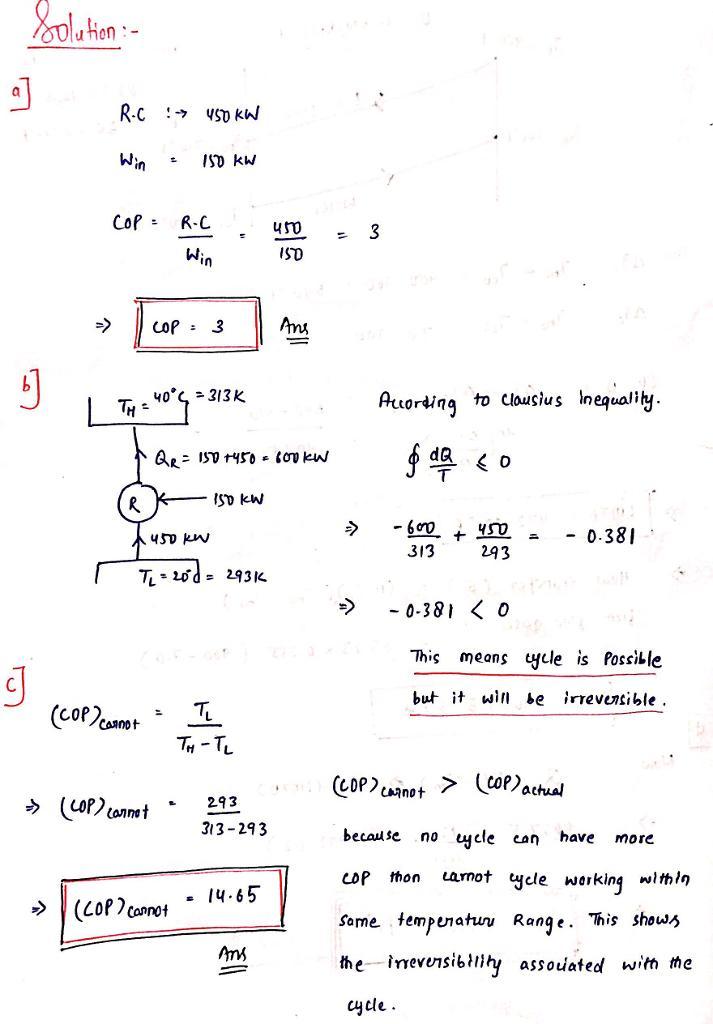 Solution :-
a]
R.C :→ 450 KW
Win = 150 KW
COP = R.C / Win = 450 / 150 = 3
⇒ COP = 3 Ans
b]
TH = 40°C = 313K
QR = 150 + 450 = 600 KW
R ← 150 KW
450 KW
TL = 20°C = 293K
According to Clausius Inequality.
∮ dQ / T ≤ 0
⇒ -600 / 313 + 450 / 293 = - 0.381
⇒ - 0.381 < 0
This means cycle is Possible
but it will be irreversible.
c]
(COP)carnot = TL / TH - TL
⇒ (COP)carnot = 293 / 313-293
⇒ (COP)carnot = 14.65
Ans
(COP)carnot > (COP)actual
because no cycle can have more
COP than carnot cycle working within
same temperature Range. This shows
the irreversibility associated with the
cycle.